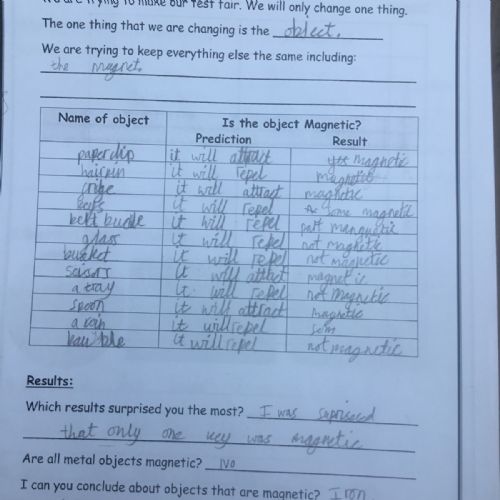 We are trying to make our test fair. We will only change one thing.
The one thing that we are changing is the object.
We are trying to keep everything else the same including:
the magnet.
Name of object Is the object Magnetic?
Prediction Result
paperclip it will attract yes magnetic
hairpin it will repel magnetic
it will attract magnetic
it will repel some magnetic
belt it will repel part
glass it will repel not magnetic
bucket it will repel not magnetic
it will attract magnetic
a tray it will repel not magnetic
spoon it will attract magnetic
a it will repel
it will repel not magnetic
Results:
Which results surprised you the most? I was
that only one key was magnetic
Are all metal objects magnetic? NO
I can you conclude about objects that are magnetic? Iron